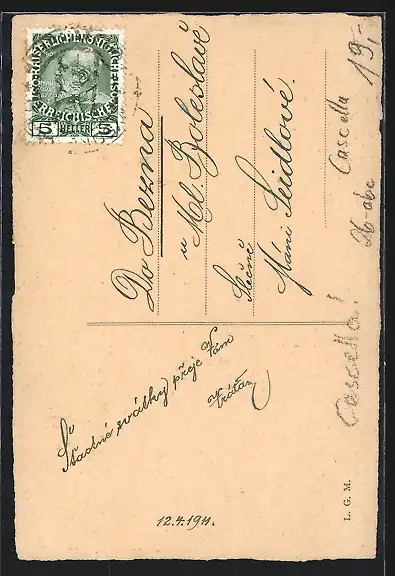 KAISERLICHE KÖNIGLICHE
ÖSTERREICHISCHE POST
5 HELLER 5
Slečně
Máni Seidlové.
u Ml. Boleslavě
Do Bezna
Šťastné svátky přeje Vám
12.4.1911.
L. G. M.
Cascella!
26-abc
Cascella
19,-